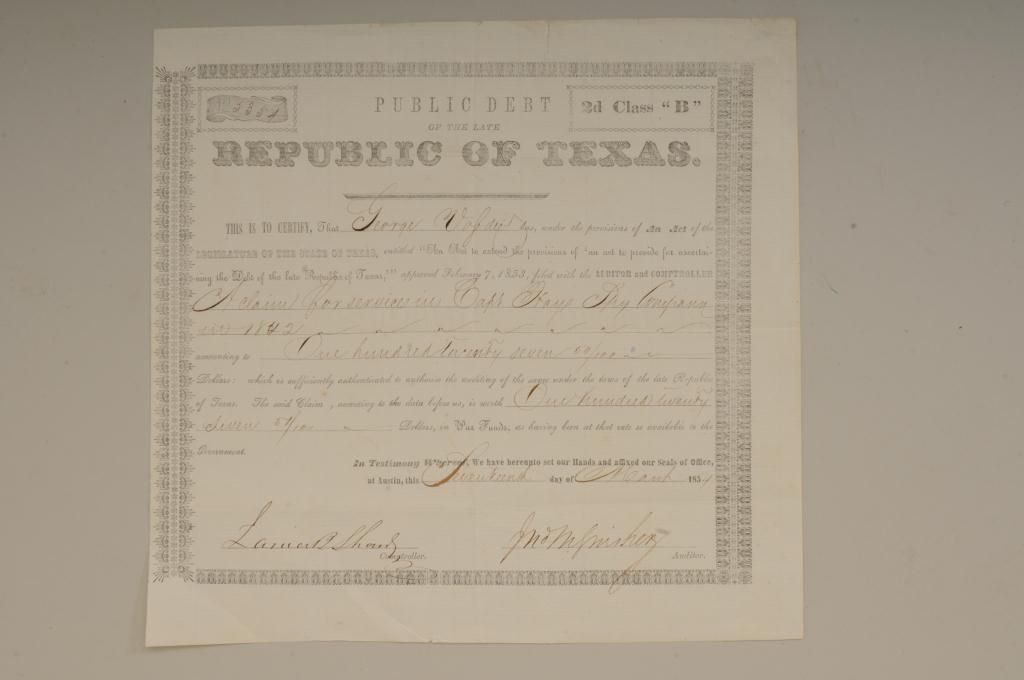 PUBLIC DEBT
2d Class "B"
OF THE LATE
REPUBLIC OF TEXAS.
THIS IS TO CERTIFY, That George has, under the provisions of An Act of the
LEGISLATURE OF THE STATE OF TEXAS, entitled "An Act to extend the provisions of 'an act to provide for ascertai-
ning the Debt of the late Republic of Texas,'" approved February 7, 1853, filed with the AUDITOR and COMPTROLLER
A claim for services in Capt Hays Spy Company
in 1842
amounting to One hundred twenty seven
Dollars: which is sufficiently authenticated to authorize the auditing of the same under the laws of the late Republic
of Texas. The said Claim, according to the data before us, is worth One hundred twenty
seven Dollars, in Par Funds, as having been at that rate so available to the
Government.
In Testimony Whereof, We have hereunto set our Hands and affixed our Seals of Office,
at Austin, this Seventeenth day of 185
Comptroller.
Auditor.